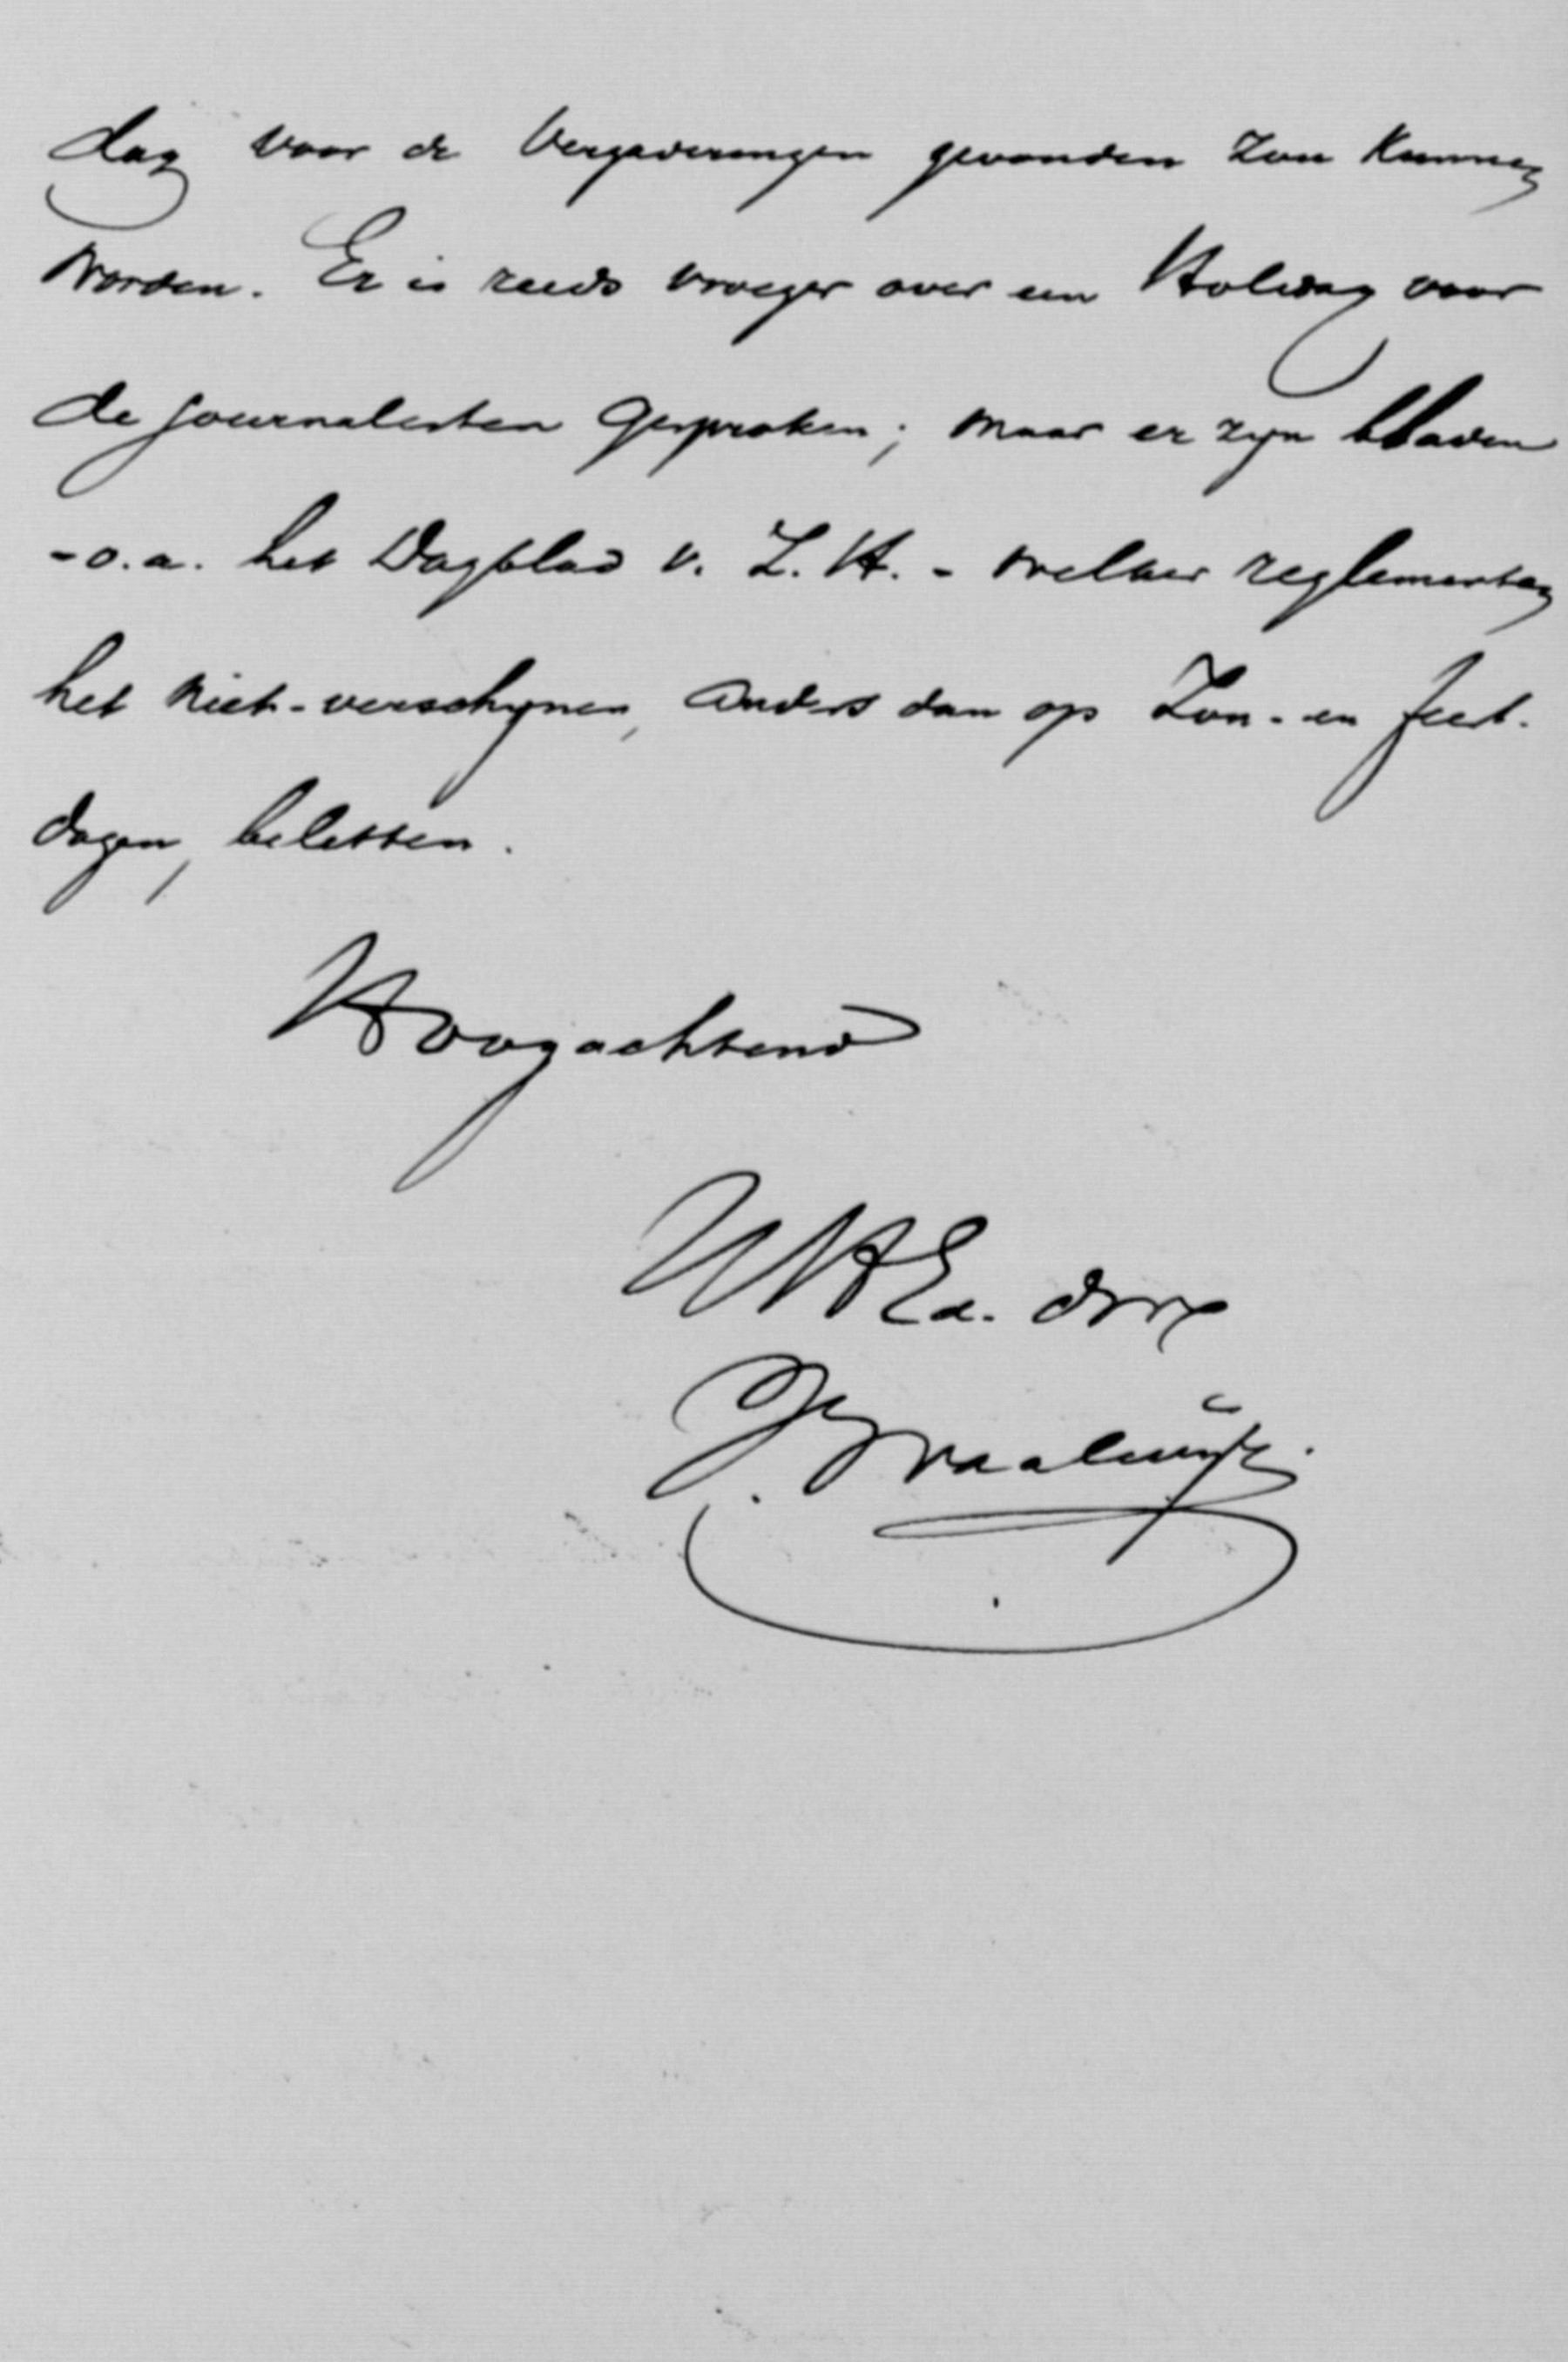 dag voor de Vergaderingen gevonden zou kunnen
worden. Er is reeds vroeger over een Holiday voor
de journalisten gesproken; maar er zyn bladen
- o.a. het Dagblad v. Z. H. - welker reglementen
het niet-verschynen, anders dan op Zon- en feest-
dagen, beletten.
Hoogachtend
UHEd. dnr